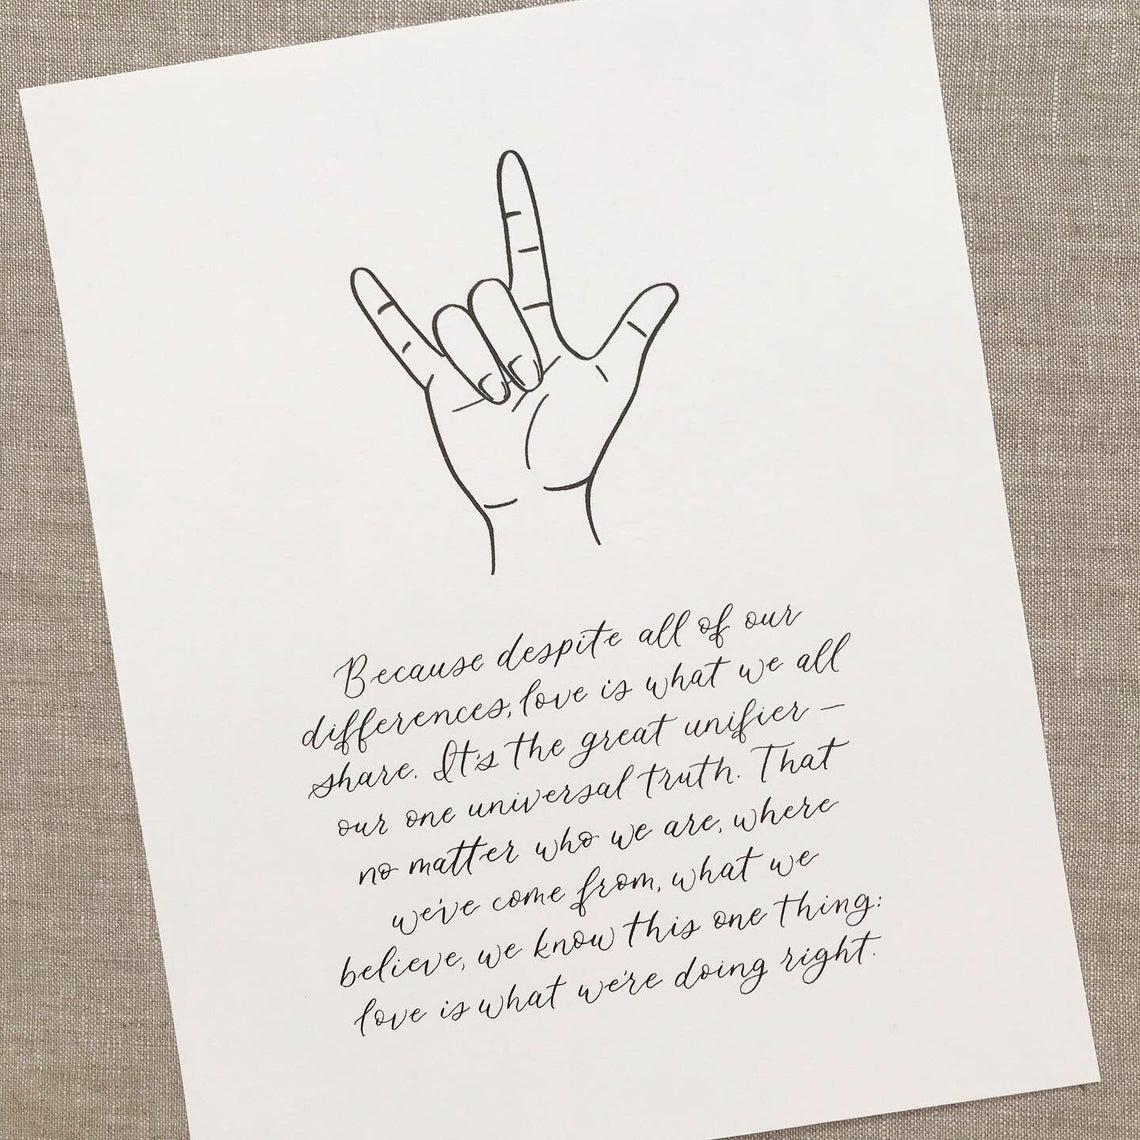 Because despite all of our
differences, love is what we all
share. It's the great unifier –
our one universal truth. That
no matter who we are, where
we've come from, what we
believe, we know this one thing:
love is what we're doing right.